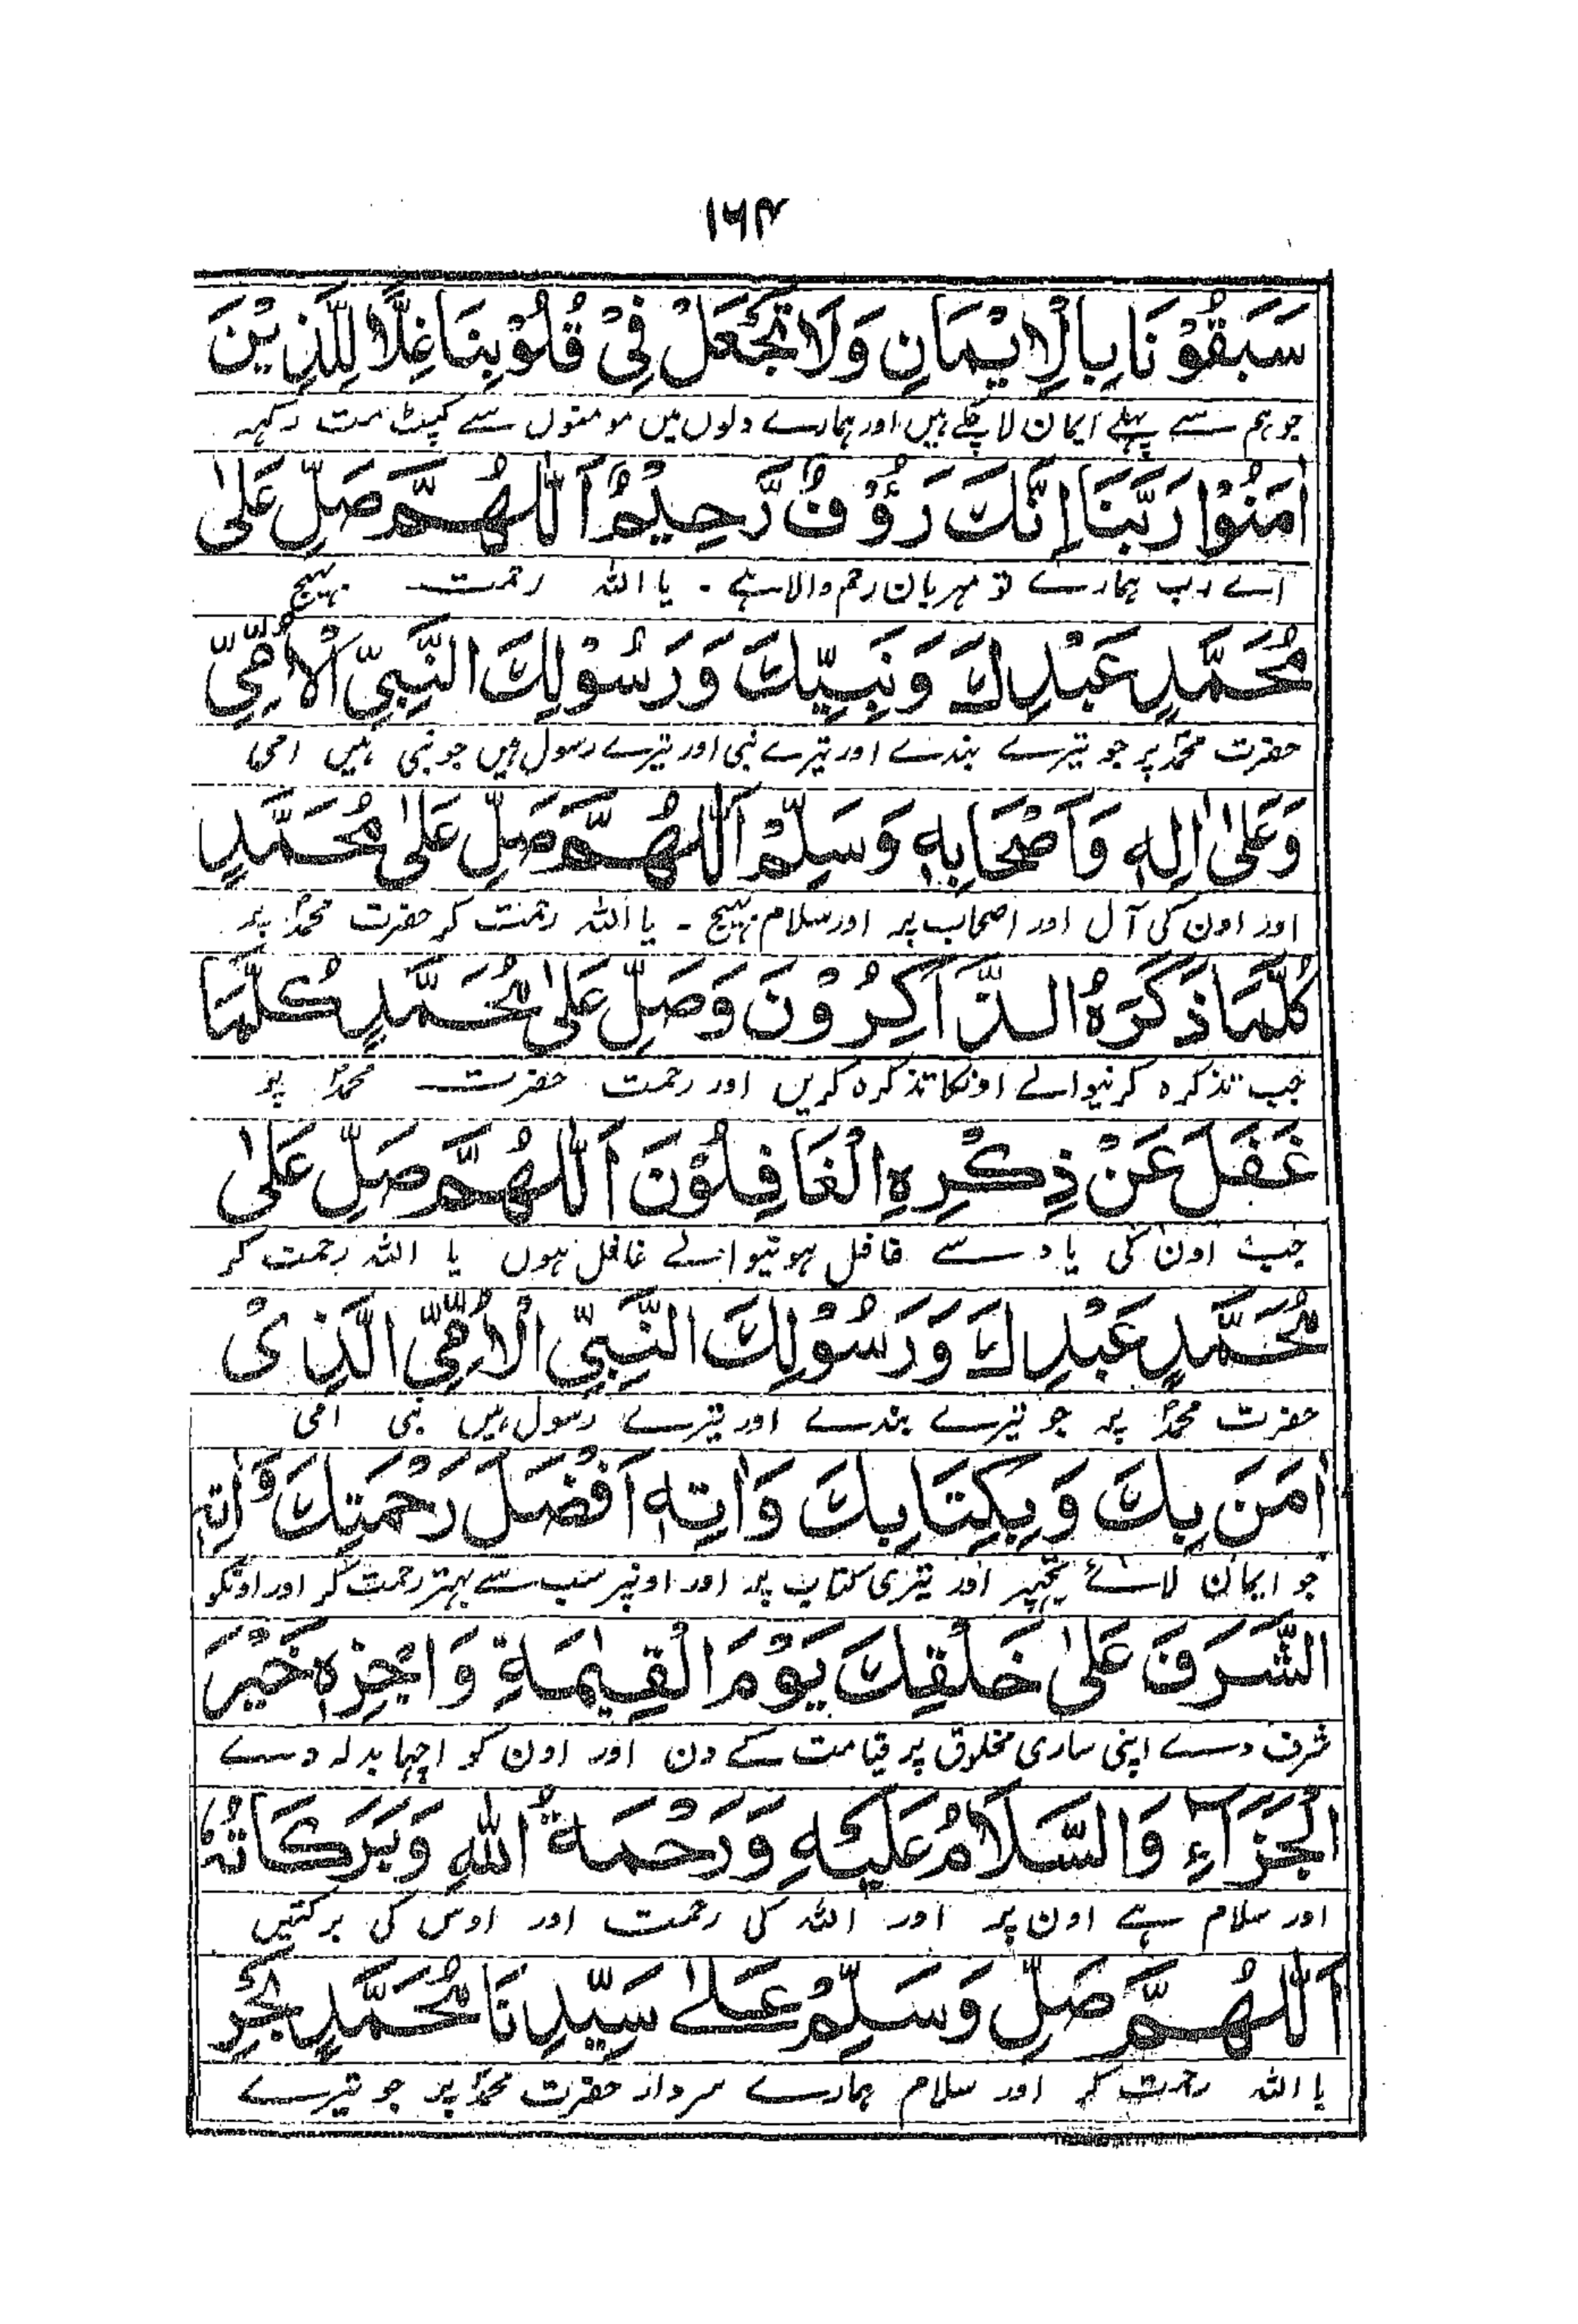 ۱۶۴
سَبَقُوْنَا بِالْاِيْمَانِ وَلَا تَجْعَلْ فِيْ قُلُوْبِنَا غِلًّا لِلَّذِيْنَ
جو ہم سے پہلے ایمان لا چکے ہیں اور ہمارے دلوں میں مومنوں سے کپٹ مت رکہہ
اٰمَنُوْا رَبَّنَا اِنَّكَ رَؤُوْفٌ رَّحِيْمٌ اَللّٰهُمَّ صَلِّ عَلٰى
اے رب ہمارے تو مہربان رحم والا ہے ۔ یا اللہ رحمت بہیج
مُحَمَّدٍ عَبْدِكَ وَنَبِيِّكَ وَرَسُوْلِكَ النَّبِيِّ الْاُمِّيِّ
حضرت محمدؐ پر جو تیرے بندے اور تیرے نبی اور تیرے رسول ہیں جو نبی ہیں امی
وَعَلٰى اٰلِهٖ وَاَصْحَابِهٖ وَسَلِّمْ اَللّٰهُمَّ صَلِّ عَلٰى مُحَمَّدٍ
اور اون کی آل اور اصحاب پر اور سلام بہیج ۔ یا اللہ رحمت کر حضرت محمدؐ پر
كُلَّمَا ذَكَرَهُ الذَّاكِرُوْنَ وَصَلِّ عَلٰى مُحَمَّدٍ كُلَّمَا
جب تذکرہ کرنیوالے اونکا تذکرہ کریں اور رحمت حضرت محمدؐ پر
غَفَلَ عَنْ ذِكْرِهِ الْغَافِلُوْنَ اَللّٰهُمَّ صَلِّ عَلٰى
جب اون کی یاد سے غافل ہونیوالے غافل ہوں یا اللہ رحمت کر
مُحَمَّدٍ عَبْدِكَ وَرَسُوْلِكَ النَّبِيِّ الْاُمِّيِّ الَّذِيْ
حضرت محمدؐ پر جو تیرے بندے اور تیرے رسول ہیں نبی امی
اٰمَنَ بِكَ وَبِكِتَابِكَ وَاٰتِهٖ اَفْضَلَ رَحْمَتِكَ وَاٰتِهِ
جو ایمان لائے تجہپر اور تیری کتاب پر اور اونپر سب سے بہتر رحمت کر اور اونکو
الشَّرَفَ عَلٰى خَلْقِكَ يَوْمَ الْقِيٰمَةِ وَاجْزِهٖ خَيْرَ
شرف دے اپنی ساری مخلاق پر قیامت کے دن اور اون کو اچہا بدلہ دے
الْجَزَآءِ وَالسَّلَامُ عَلَيْهِ وَرَحْمَةُ اللّٰهِ وَبَرَكَاتُهٗ
اور سلام ہے اون پر اور اللہ کی رحمت اور اوس کی برکتیں
اَللّٰهُمَّ صَلِّ وَسَلِّمْ عَلٰى سَيِّدِنَا مُحَمَّدٍ بَحْرِ
یا اللہ رحمت کر اور سلام ہمارے سردار حضرت محمدؐ پر جو تیرے